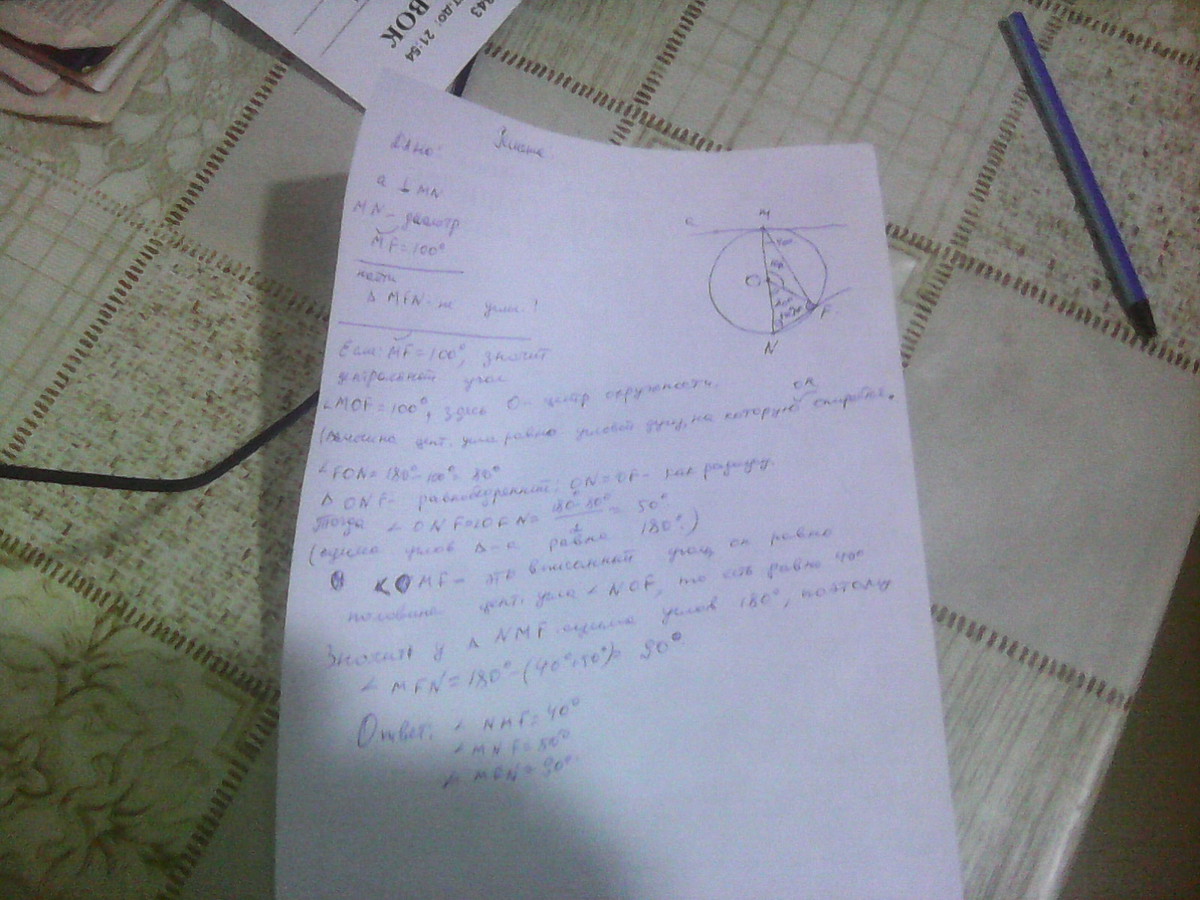 843
ДО: 21:54
ВОК
Дано:
a ⊥ MN
MN -
MF = 100°
найти
Δ MFN - не углы!
a
M
O
F
N
Если: MF = 100°, значит
центральный угол
∠MOF = 100°, здесь O - центр окружности.
он
цент. угла равно угловой дуги, на которую опирается.
∠FON = 180° - 100° = 80°
Δ ONF - равнобедренный: ON = OF - как радиусы
Тогда ∠ ONF = OFN = 180°-80° / 2 = 50°
(сумма углов Δ-а равна 180°.)
∠OMF - это вписанный угол, он равно
половине цент. угла ∠ NOF, то есть равно 40°
Значит у Δ NMF сумма углов 180°, поэтому
∠ MFN = 180° - (40°+50°) = 90°
Ответ: ∠ NMF = 40°
∠ MNF = 50°
∠ MFN = 90°